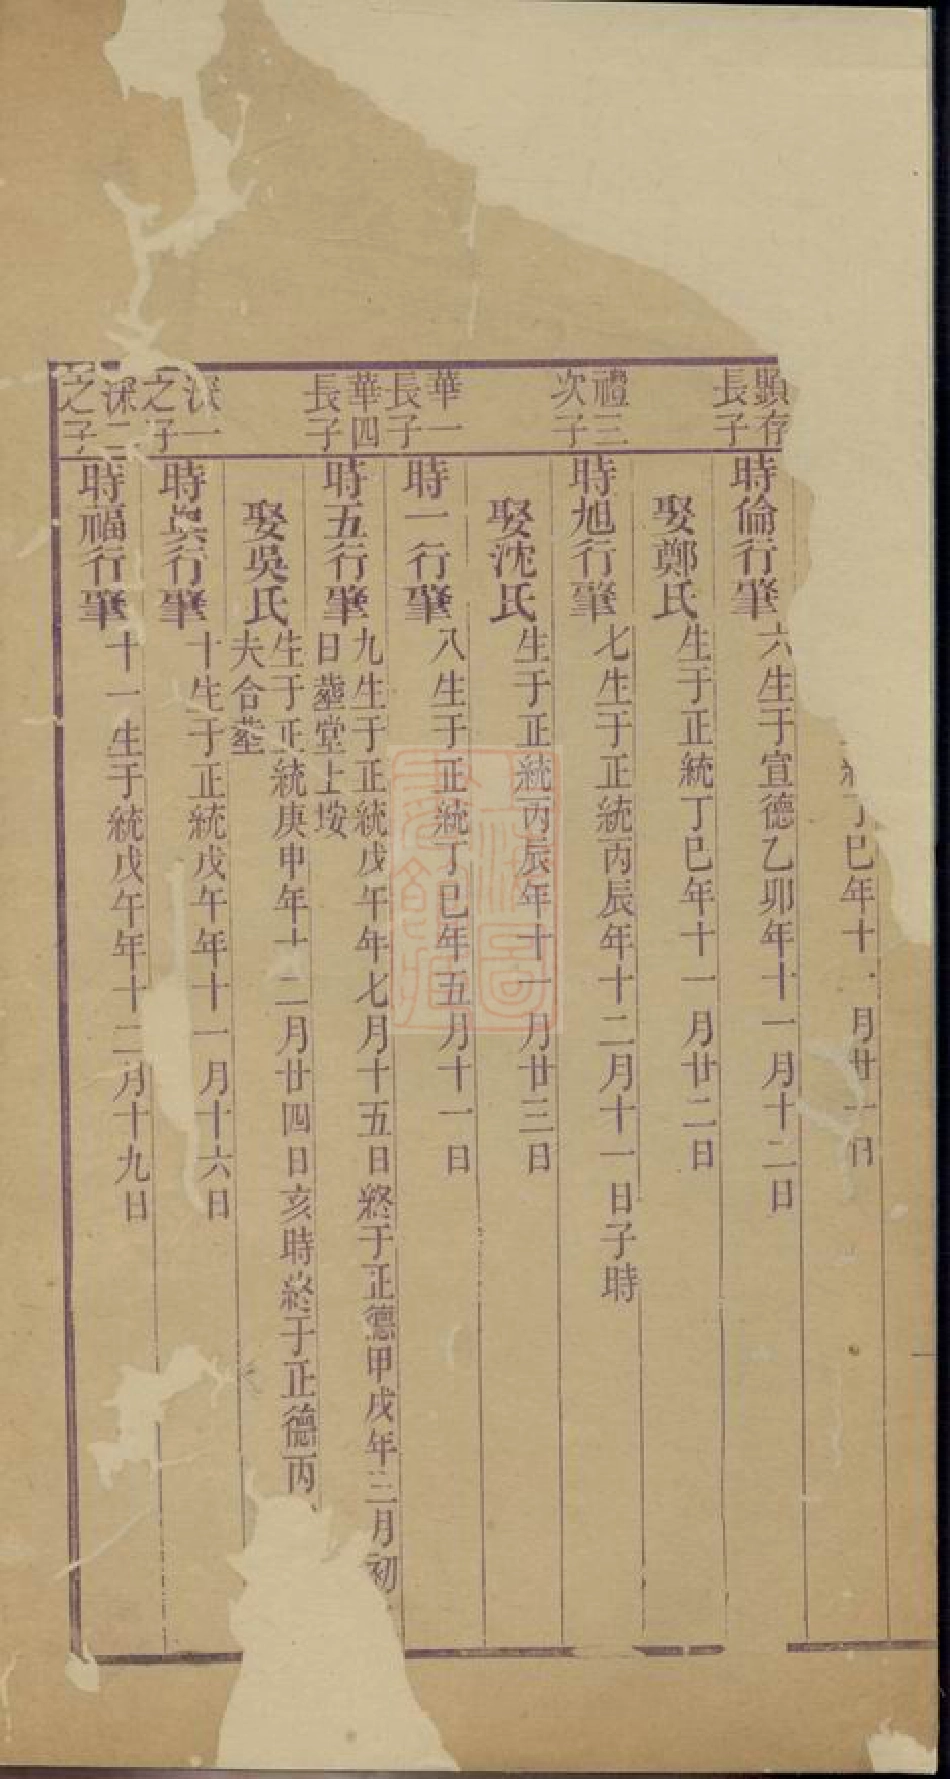 丁巳年十 月廿 日
顯存
長子
時倫行肇六生于宣德乙卯年十一月十二日
娶鄭氏生于正統丁巳年十一月廿二日
禮三
次子
時旭行肇七生于正統丙辰年十二月十一日子時
娶沈氏生于正統丙辰年十一月廿三日
華一
長子
時一行肇八生于正統丁巳年五月十一日
華四
長子
時五行肇九生于正統戊午年七月十五日終于正德甲戌年三月初
日葬堂上垵
娶吳氏生于正統庚申年十二月廿四日亥時終于正德丙
夫合葬
深一
之子
時吳行肇十生于正統戊午年十一月十六日
深二
之子
時福行肇十一生于統戊午年十二月十九日